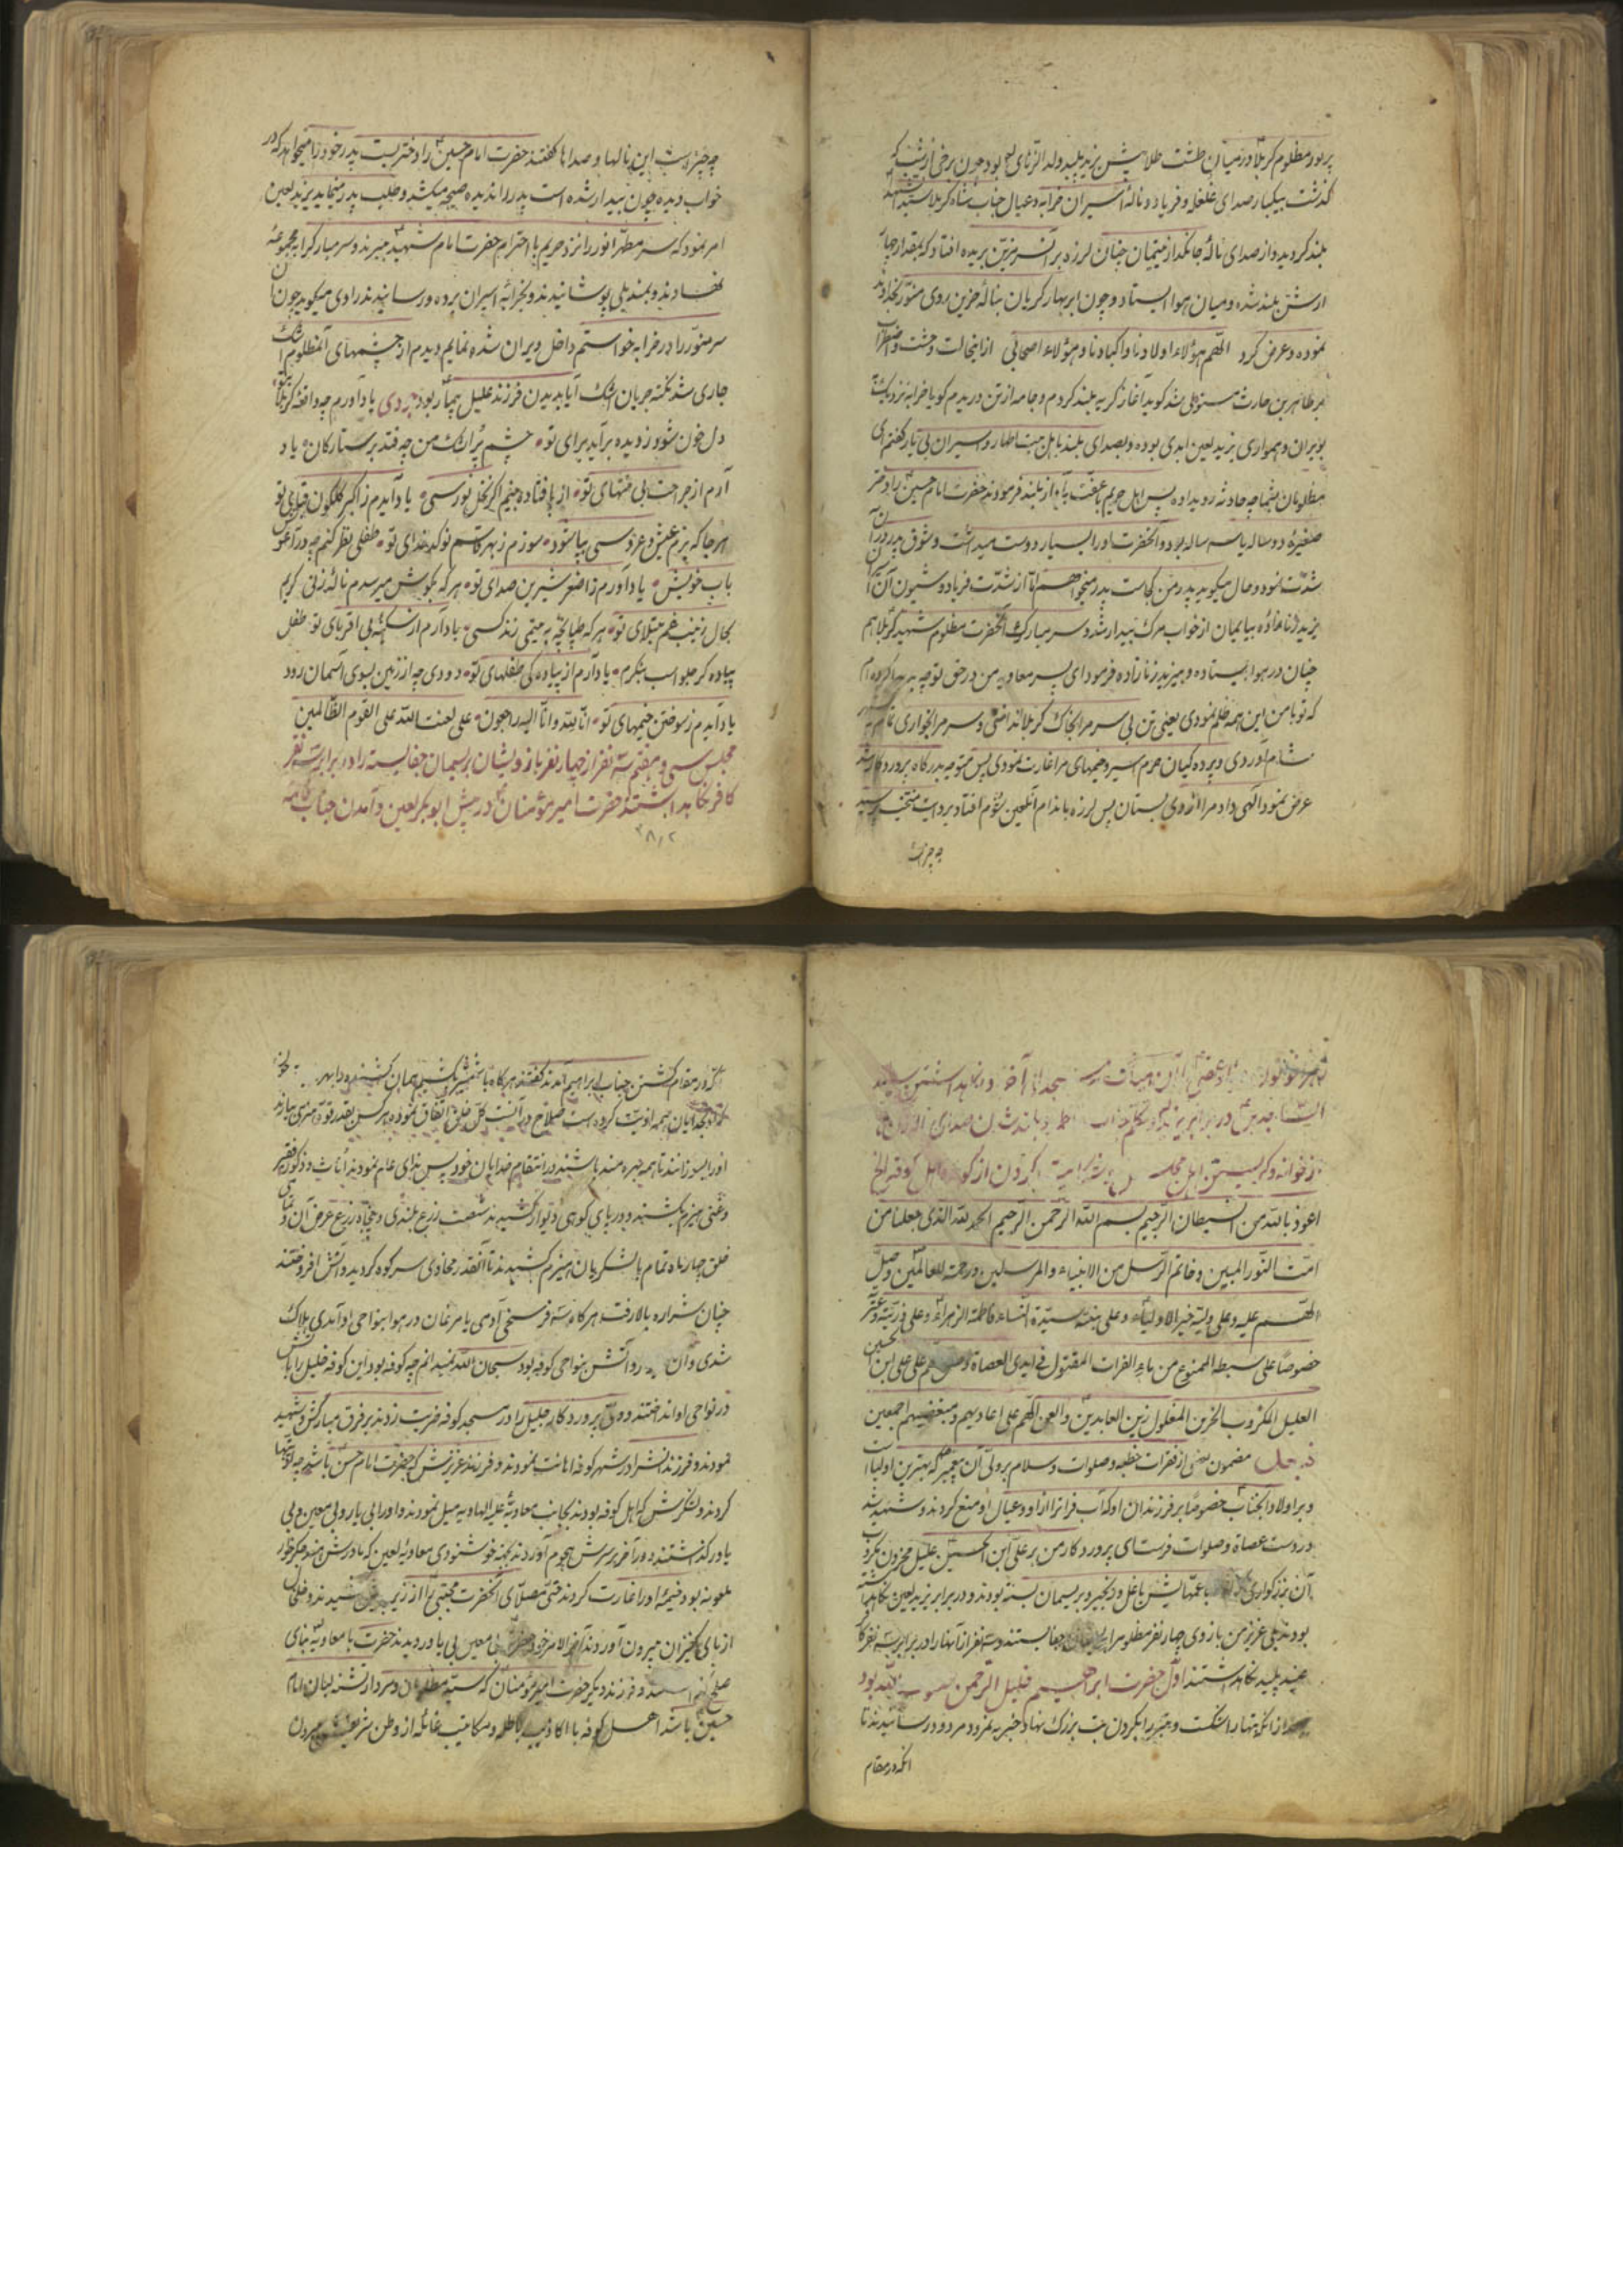 پر نور مظلوم کربلا در میان طشت طلا پیش یزید پلید ولد الزنای بود چون برخی از شب که
گذشت بیکبار صدای غلغله و فریاد و ناله اسیران خرابه و عیال جناب شاه کربلا سید الشهدا
بلند گردید و از صدای ناله جانگداز یتیمان چنان لرزه بر آن سر مزین بریده افتاد که بمقدار چهار
ارش بلند شده و میان هوا ایستاد و چون ابر بهار گریان بناله حزین روی منور بخداوند
نموده و عرض کرد اللهم هؤلاء اولادنا و اکبادنا و هؤلاء اصحابی از اینحالت وحشت و اضطراب
بر طاهر بن حارث مستولی شد گوید آغاز گریه بلند کردم و جامه از تن دریدم گویا خرابه نزدیک
بویران و همواری یزید لعین ابدی بوده و بصدای بلند باهل بیت اطهار و اسیران بی یار گفتم ای
مظلومان بشما چه حادثه رو یداده پس اهل حریم با عفت بآواز بلند فرمودند حضرت امام حسین را دختر
صغیره دو ساله یا سه ساله بود و آنحضرت او را بسیار دوست میداشت و شوق پدر در آن
شدت نمود و حال میگوید پدر من کجاست پدر میخواهم اما از شدت فریاد و شیون آن اسیران
یزید زنازاده بی ایمان از خواب مرگ بیدار شد و سر مبارک آنحضرت مظلوم شهید کربلا هم
چنان در هوا ایستاده و بیزید زنازاده فرمود ای پسر معاویه من در حق تو چه بد کرده ام
که تو با من این همه ظلم نمودی یعنی تن بی سر مرا بخاک کربلا انداختی و سر مرا بخواری تمام بشهر
شام آوردی و پرده گیان حرم اسیر و خیمهای مرا غارت نمودی پس متوجه بدرگاه پروردگار شد
عرض نمود الهی داد مرا از وی بستان پس لرزه باندام آنلعین شوم افتاد بر داشت متحیر پرسید
چه چیز است
چه چیز است این نالها و صداها گفتند حضرت امام حسین را دختریست پدر خود را میخواهد که در
خواب دیده چون بیدار شده است پدر را ندیده صیحه میکشد و طلب پدر مینماید یزید لعین
امر نمود که سر مطهر انور را نزد حریم با احترام حضرت امام شهید میبرند و سر مبارک را بمجموعه
نهادند و بمندیلی پوشانیدند و بخرابه اسیران برده و رسانیدند راوی میگوید چون آن
سر منور را در خرابه خواستم داخل ویران شده نمایم دیدم از چشمهای آنمظلوم اشک
جاری شد نکته جریان اشک آیا بدیدن فرزند علیل بیمار بود بردی یاد آورم چه واقعه کربلای تو
دل خون شود ز دیده برآید برای تو چشم پر اشک من چه فتد بر ستارگان یاد
آرم از جراحت بی منتهای تو از پا فتاده بینم اگر نخل نورسی یاد آیدم ز اکبر گلگون قبای تو
هر جا که بزم عیش و عروسی بپا شود سوزم ز بهر قاسم نو کدخدای تو طفلی نظر کنم چه در آغوش
باب خویش یاد آورم ز اصغر شیرین صدای تو هر گه بگوش میرسدم ناله زنی گریم
بحال زینب غم مبتلای تو هر گه طپانچه به یتیمی زند کسی یاد آرم از سکینه بی اقربای تو طفل
پیاده گر جلو اسب بنگرم یاد آرم از پیادگی طفلهای تو دودی چه از زمین بسوی آسمان رود
یاد آیدم ز سوختن خیمهای تو انا لله و انا الیه راجعون علی لعنت الله علی القوم الظالمین
مجلس سی و هفتم سه نفر از چهار نفر بازویشان بریسمان جفا بسته را در برابر سه نفر
کافر نگاهداشتند حضرت امیر مؤمنان در پیش ابو بکر لعین و آمدن جناب فاطمه
الساجدین در برابر یزید و تکلم جناب
اعوذ بالله من الشیطان الرجیم بسم الله الرحمن الرحیم الحمد لله الذی جعلنا من
امت النور المبین و خاتم الرسل من الانبیاء و المرسلین و رحمة للعالمین و صل
اللهم علیه و علی ولیه خیر الاولیاء و علی بنته سیدة النساء فاطمة الزهراء و علی ذریته و عترته
خصوصا علی سبطه الممنوع من ماء الفرات المقتول فی ایدی العصاة و صلی علی علی ابن الحسین
العلیل المکروب الحزین المغلول زین العابدین و العن اللهم علی اعادیهم و مبغضیهم اجمعین
مضمون بعضی از فقرات خطبه و صلوات و سلام بر ولی آن پیغمبر که بهترین اولیا است
و بر اولاد آنجناب خصوصا بر فرزندان او که آب فرات را از او و عیال او منع کردند و شهید شد
در دست عصاة و صلوات فرست ای پروردگار من بر علی ابن الحسین علیل محزون مکروب
آن بزرگواری که با عمهایش با غل و زنجیر و بریسمان بسته بودند و در برابر یزید لعین نگاهداشته
بودند بلی عزیز من بازوی چهار نفر مظلوم را بریسمان جفا بستند و سه نفر از آنها را در برابر سه نفر کافر
عنید پلید نگاهداشتند اول حضرت ابراهیم خلیل الرحمن بود
بعد از آنکه بتها را شکست و تبر را بگردن بت بزرگ نهاد خبر به نمرود مردود رسانیدند تا
آنکه در مقام
که در مقام کشتن جناب ابراهیم آمدند گفتند هر گاه با شمشیر بکشیم همان کشته شود
بخدایان همه اذیت کرده است صلاح در آنست کل خلق اتفاق نموده هر کس بقدر قوة هیزمی بیارند
او را بسوزانند تا همه بهره مند باشند در انتقام خدایان خود پس ندای عام نمودند اناث و ذکور فقیر
و غنی هیزم بکشند و در پای کوهی دیوار کشیدند شصت زرع بلندی و پنجاه زرع عرض آن و تمامی
خلق چهار ماه تمام با لشکریان هیزم کشیدند تا آنقدر محاذی سر کوه گردید و آتش افروختند
چنان شراره بالا رفت هر گاه سه فرسخی آدمی یا مرغان در هوا بنواحی او آمدی هلاک
شدی و آن آتش بنواحی کوفه بود سبحان الله نمیدانم چه کوفه بود این کوفه خلیل را بآتش
در نواحی او انداختند و ولی پروردگار جلیل را در مسجد کوفه ضربت زدند بر فرق مبارکش و شهید
نمودند و فرزندانش را در شهر کوفه اهانت نمودند و فرزند عزیزش که حضرت امام حسن باشد چه اذیتها
کردند و لشکرش که اهل کوفه بودند بجانب معاویه علیه الهاویه میل نمودند و او را بی یار و بی معین و بی
یاور گذاشتند و در آخر بر سرش هجوم آوردند بجهة خوشنودی معاویه لعین که مادرش هند جگر خوار
ملعونه بود خیمه او را غارت کردند حتی مصلای آنحضرت مجتبی را از زیر کشیدند و خلخال
از پای کنیزان بیرون آوردند آخر الامر خود را بی معین بی یاور دیدند حضرت با معاویه بنای
صلح و فرزند دیگر حضرت امیر مؤمنان که سید مظلومان و سردار تشنه لبان امام
حسین باشد اهل کوفه با اکاذیب باطله و مکاتیب عاطله از وطن شریفش بیرون